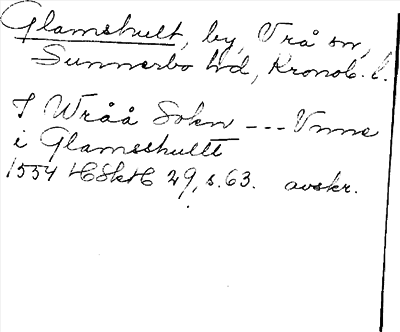 Glamshult, by, Vrå sn,
Sunnerbo hd, Kronob. l.
I Wråå Sokn --- Unne
i Glamsshullt
1554 HSkH 29, s. 63. avskr.